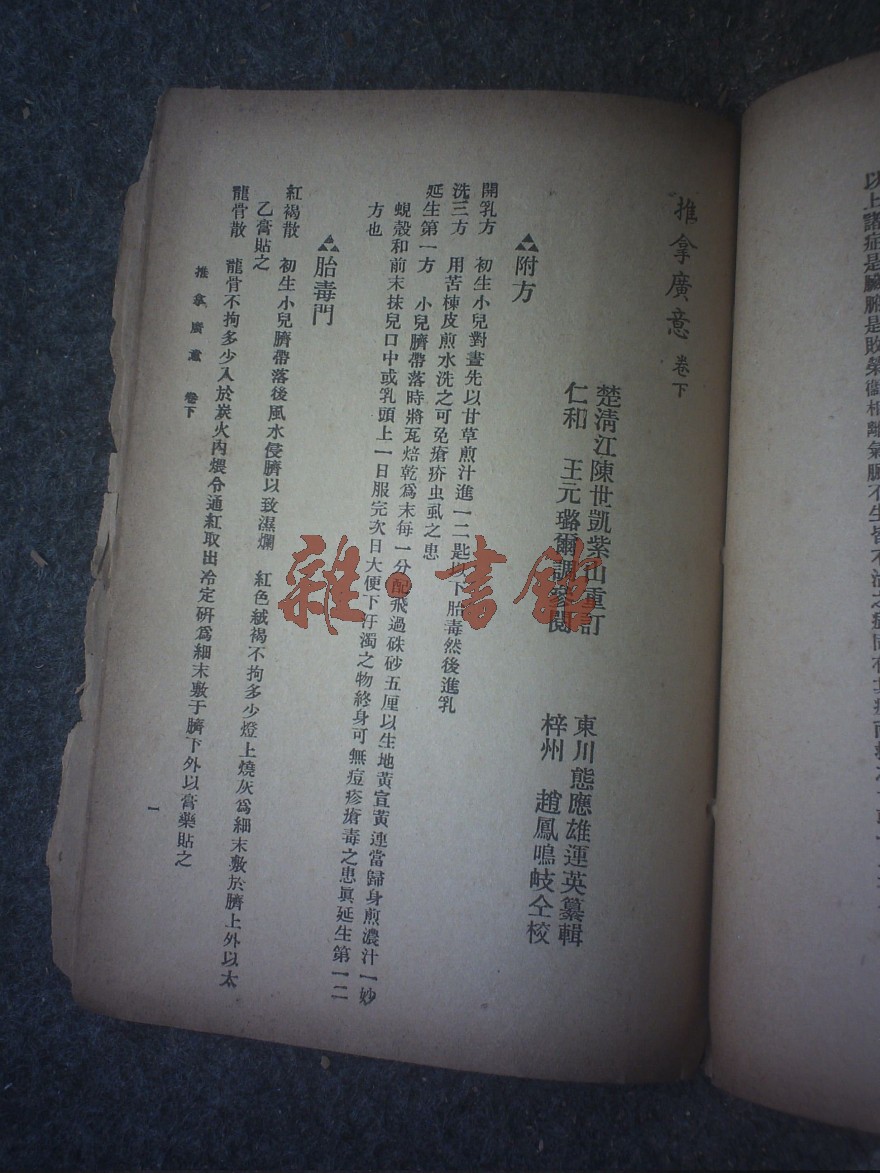 推拿廣意 卷下
楚清江陳世凱紫山重訂
東川態應雄運英纂輯
仁和 王元璐爾調參閱
梓州 趙鳳鳴岐仝校
附方
開乳方 初生小兒對晝先以甘草煎汁進一二匙以下胎毒然後進乳
洗三方 用苦楝皮煎水洗之可免瘡疥虫虱之患
延生第一方 小兒臍帶落時將瓦焙乾爲末每一分配飛過硃砂五厘以生地黃宣黃連當歸身煎濃汁一妙
蜆殼和前末抹兒口中或乳頭上一日服完次日大便下汙濁之物終身可無痘疹瘡毒之患眞延生第一二
方也
胎毒門
紅褐散 初生小兒臍帶落後風水侵臍以致濕爛 紅色絨褐不拘多少燈上燒灰爲細末敷於臍上外以太
乙膏貼之
龍骨散 龍骨不拘多少入於炭火內煨令通紅取出冷定硏爲細末敷于臍下外以膏藥貼之
推拿廣意 卷下
一
雜·書館